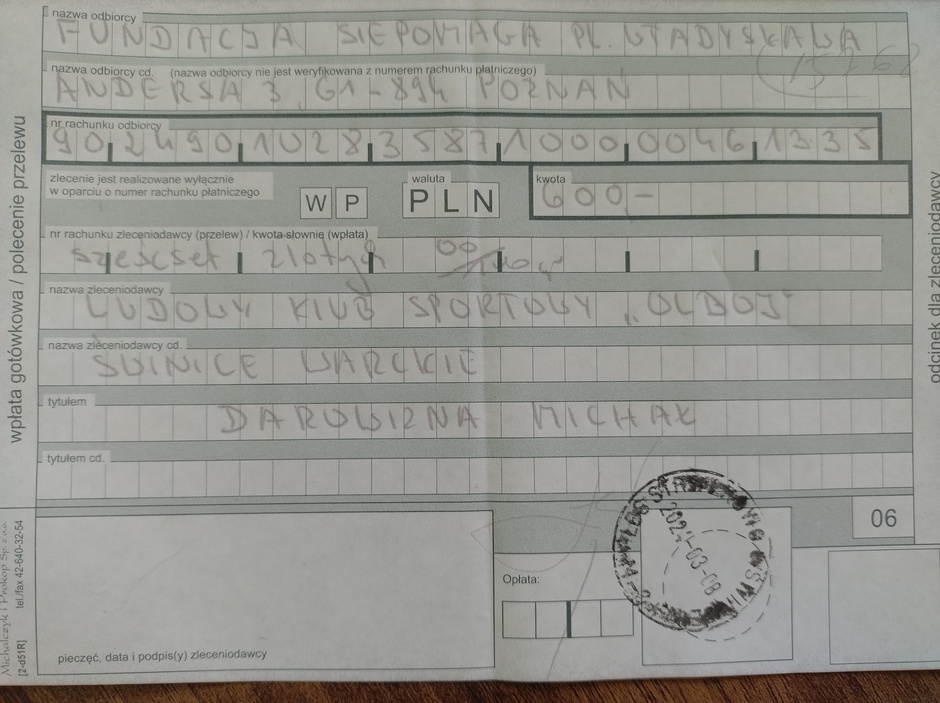 nazwa odbiorcy
FUNDACJA SIEPOMAGA PL. WŁADYSŁAWA
nazwa odbiorcy cd. (nazwa odbiorcy nie jest weryfikowana z numerem rachunku płatniczego)
ANDERSA 3, 61-894 POZNAŃ
nr rachunku odbiorcy
90 2490 1028 3587 1000 0046 1335
zlecenie jest realizowane wyłącznie
w oparciu o numer rachunku płatniczego
W P
waluta
PLN
kwota
600,-
nr rachunku zleceniodawcy (przelew) / kwota słownie (wpłata)
sześcset złotych 00/100 gr
nazwa zleceniodawcy
LUDOWY KLUB SPORTOWY „OLBOJ"
nazwa zleceniodawcy cd.
ŚWINICE WARCKIE
tytułem
DAROWIZNA MICHAŁ
tytułem cd.
06
Opłata:
2021-03-08
pieczęć, data i podpis(y) zleceniodawcy
wpłata gotówkowa / polecenie przelewu
Michalczyk i Prokop Sp. z o.o.
tel./fax 42-640-32-54
[2-d51R]
odcinek dla zleceniodawcy